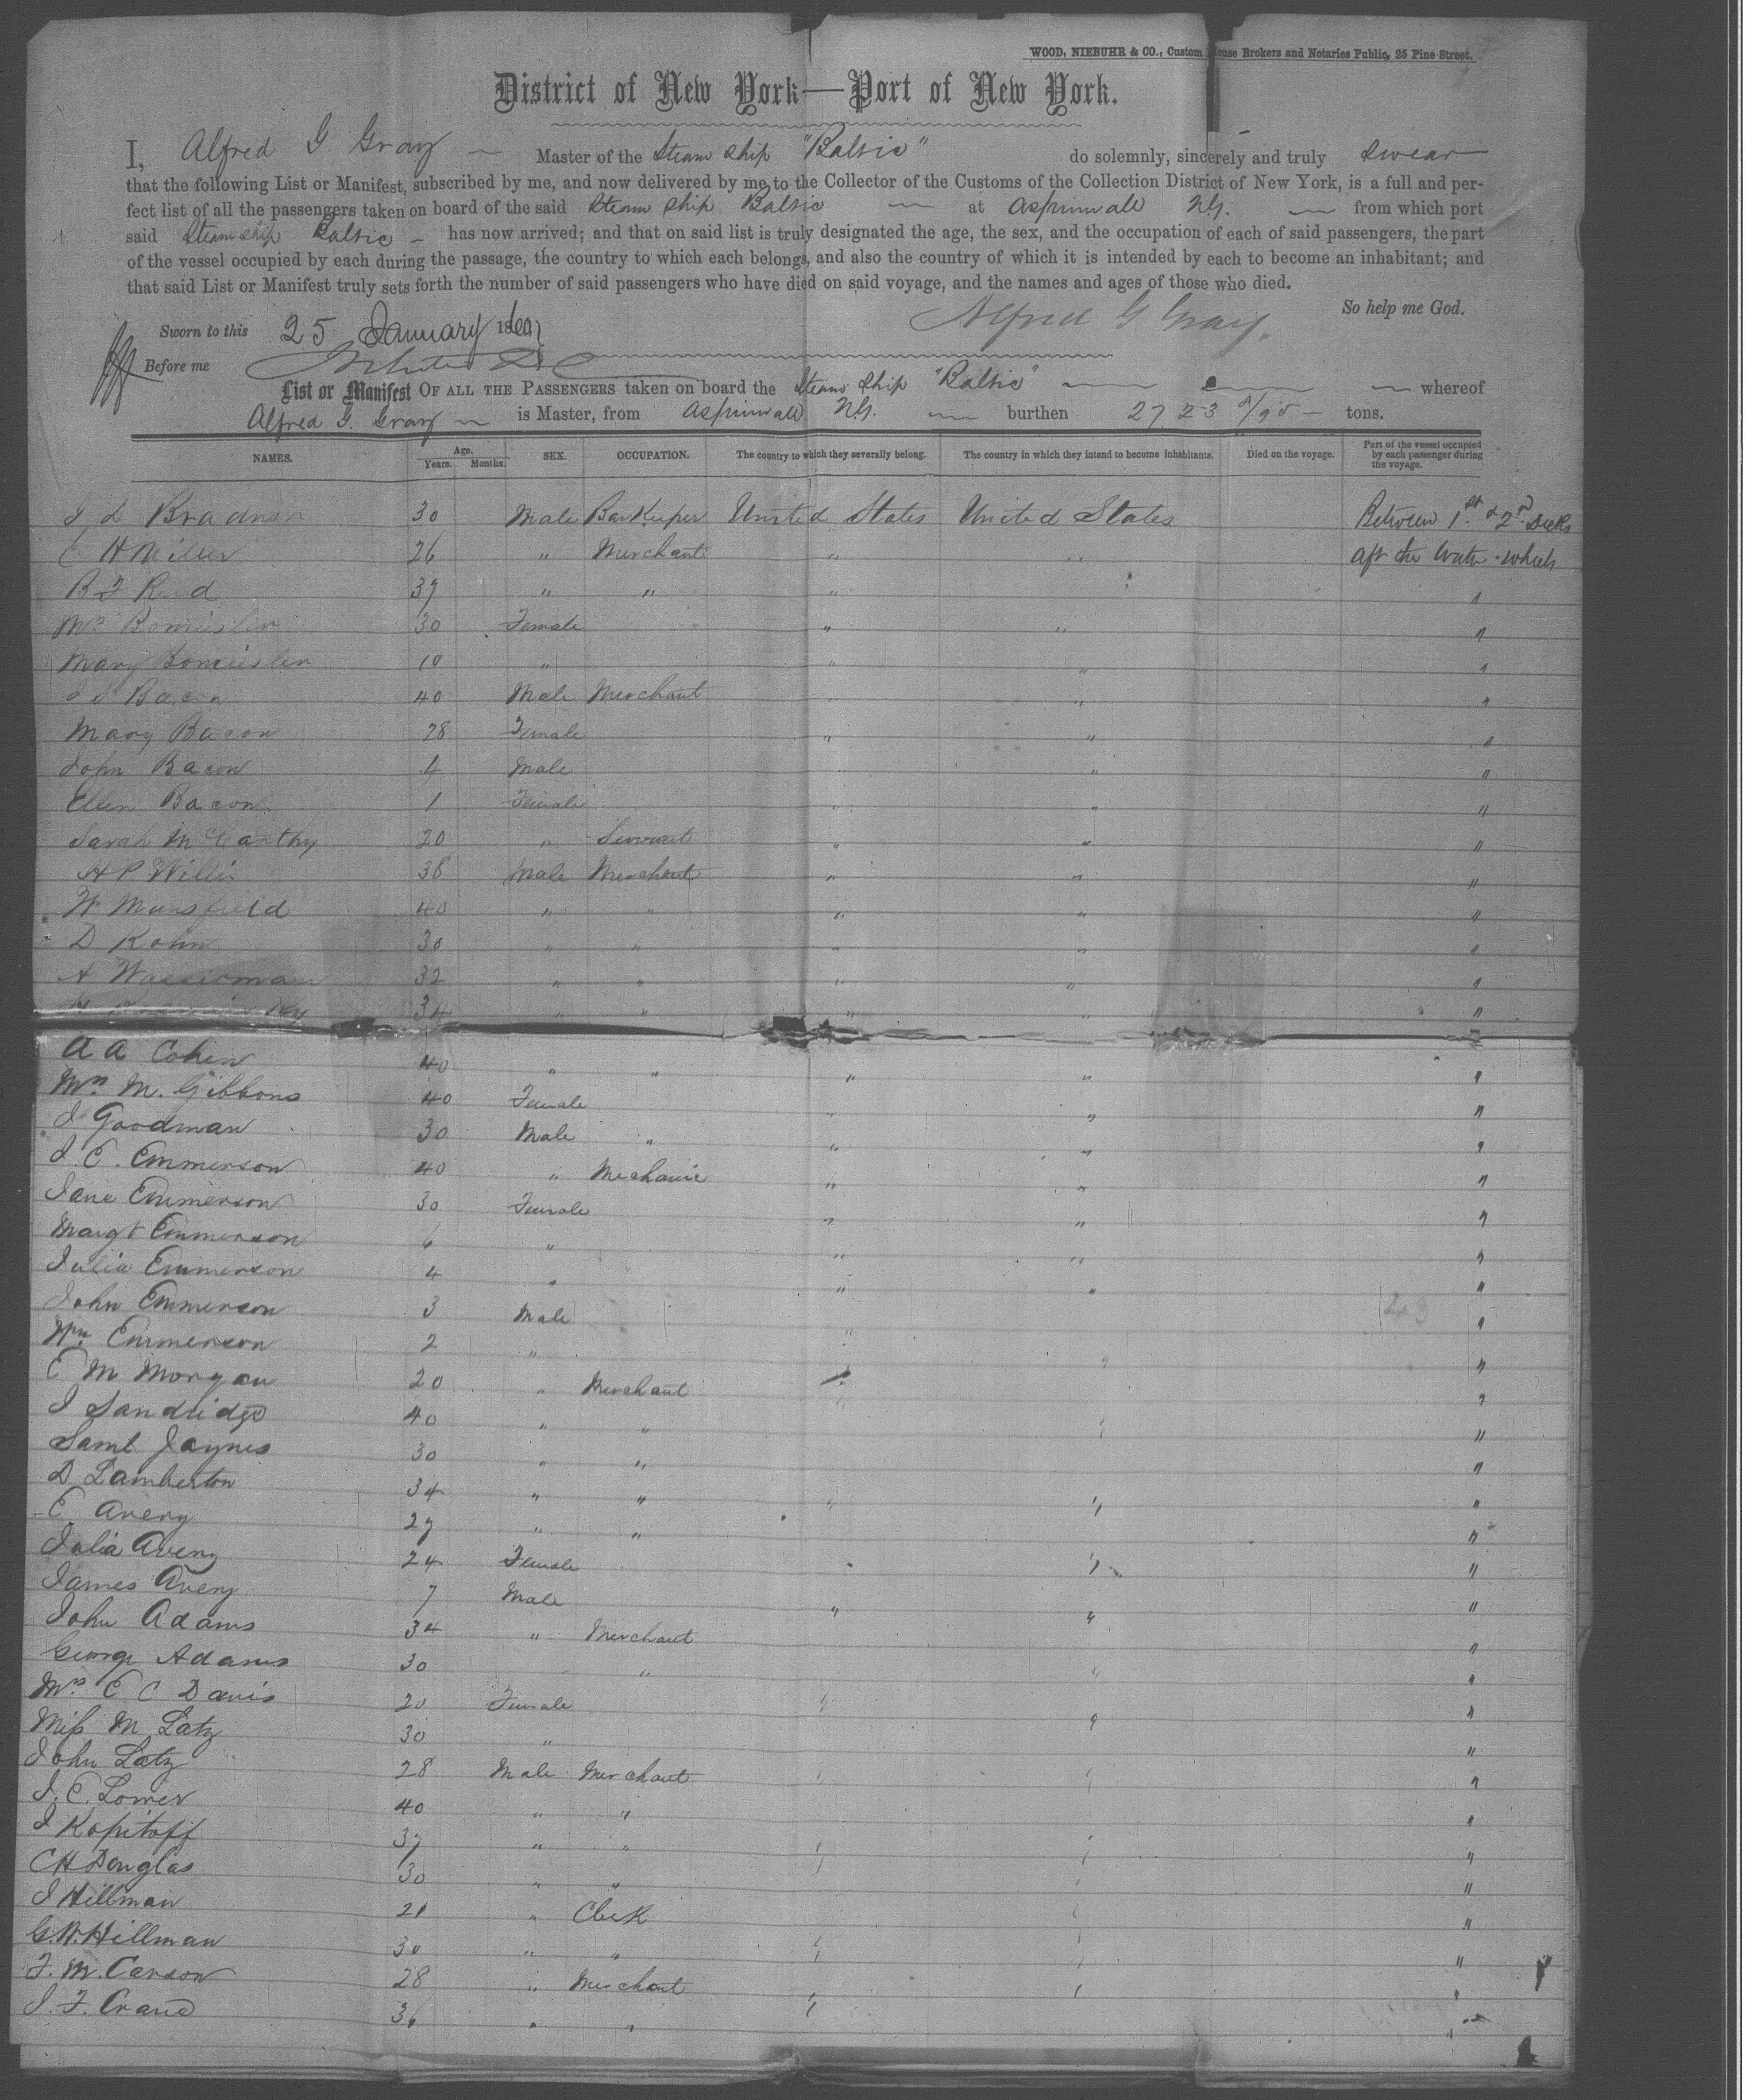 WOOD, NIEBUHR & CO., Custom House Brokers and Notaries Public, 25 Pine Street.
District of New York—Port of New York.
I, Alfred G. Gray — Master of the Steam Ship "Baltic" do solemnly, sincerely and truly swear
that the following List or Manifest, subscribed by me, and now delivered by me to the Collector of the Customs of the Collection District of New York, is a full and per-
fect list of all the passengers taken on board of the said Steam Ship Baltic — at Aspinwall N.G. — from which port
said Steam Ship Baltic — has now arrived; and that on said list is truly designated the age, the sex, and the occupation of each of said passengers, the part
of the vessel occupied by each during the passage, the country to which each belongs, and also the country of which it is intended by each to become an inhabitant; and
that said List or Manifest truly sets forth the number of said passengers who have died on said voyage, and the names and ages of those who died.
So help me God.
Sworn to this 25 January 18 Alfred G Gray.
Before me
List or Manifest OF ALL THE PASSENGERS taken on board the Steam Ship "Baltic" — — — whereof
Alfred G. Gray — is Master, from Aspinwall N.G. — burthen 2723 /95 — tons.
NAMES. Age. Years. Months. SEX. OCCUPATION. The country to which they severally belong. The country in which they intend to become inhabitants. Died on the voyage. Part of the vessel occupied by each passenger during the voyage.
30 Male BarKeeper United States United States Between 1st & 2nd Decks
C H Miller 26 " Merchant " " aft the Water-wheels
B F 37 " " " "
Mrs 30 Female " " "
Mary 10 " " " "
Bacon 40 Male Merchant " " "
Mary Bacon 28 Female " " "
John Bacon 4 Male " " "
Ellen Bacon 1 Female " " "
Sarah McCarthy 20 " Servant " " "
H P Willis 38 Male Merchant " " "
W Mansfield 40 " " " " "
D Kohn 30 " " " " "
A Wasserman 32 " " " " "
34 " " " " "
A A Cohen 40 " " " " "
Mrs M. Gibbons 40 Female " " "
J Goodman 30 Male " " " "
J. C. Emmerson 40 " Mechanic " " "
Jane Emmerson 30 Female " " "
Margt Emmerson 6 " " " "
Julia Emmerson 4 " " " "
John Emmerson 3 Male " "
Wm Emmerson 2 " " "
E M Morgan 20 " Merchant " "
J Sandridge 40 " " " "
Saml Jaynes 30 " " "
D Lamberton 34 " " " " "
E. Avery 27 " " "
Julia Avery 24 Female " " "
James Avery 7 Male " " "
John Adams 34 " Merchant "
George Adams 30 " " "
Mrs E C Davis 20 Female " " "
Miss M Latz 30 " "
John Latz 28 Male Merchant " " "
J. C. Lower 40 " " "
J Kopitoff 37 " " " " "
C H Douglas 30 " " " "
J Hillman 21 " Clerk " "
G. W. Hillman 30 " " " " "
F. M. Carson 28 " Merchant " " "
J. F. Crane 36 " " " "